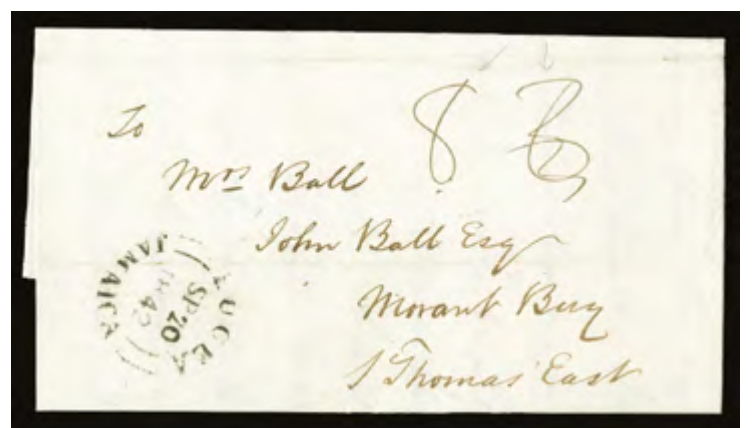 8
To
Mrs Ball
John Ball Esq
Morant Bay
S Thomas East
LUCEA
SP 20
1842
JAMAICA